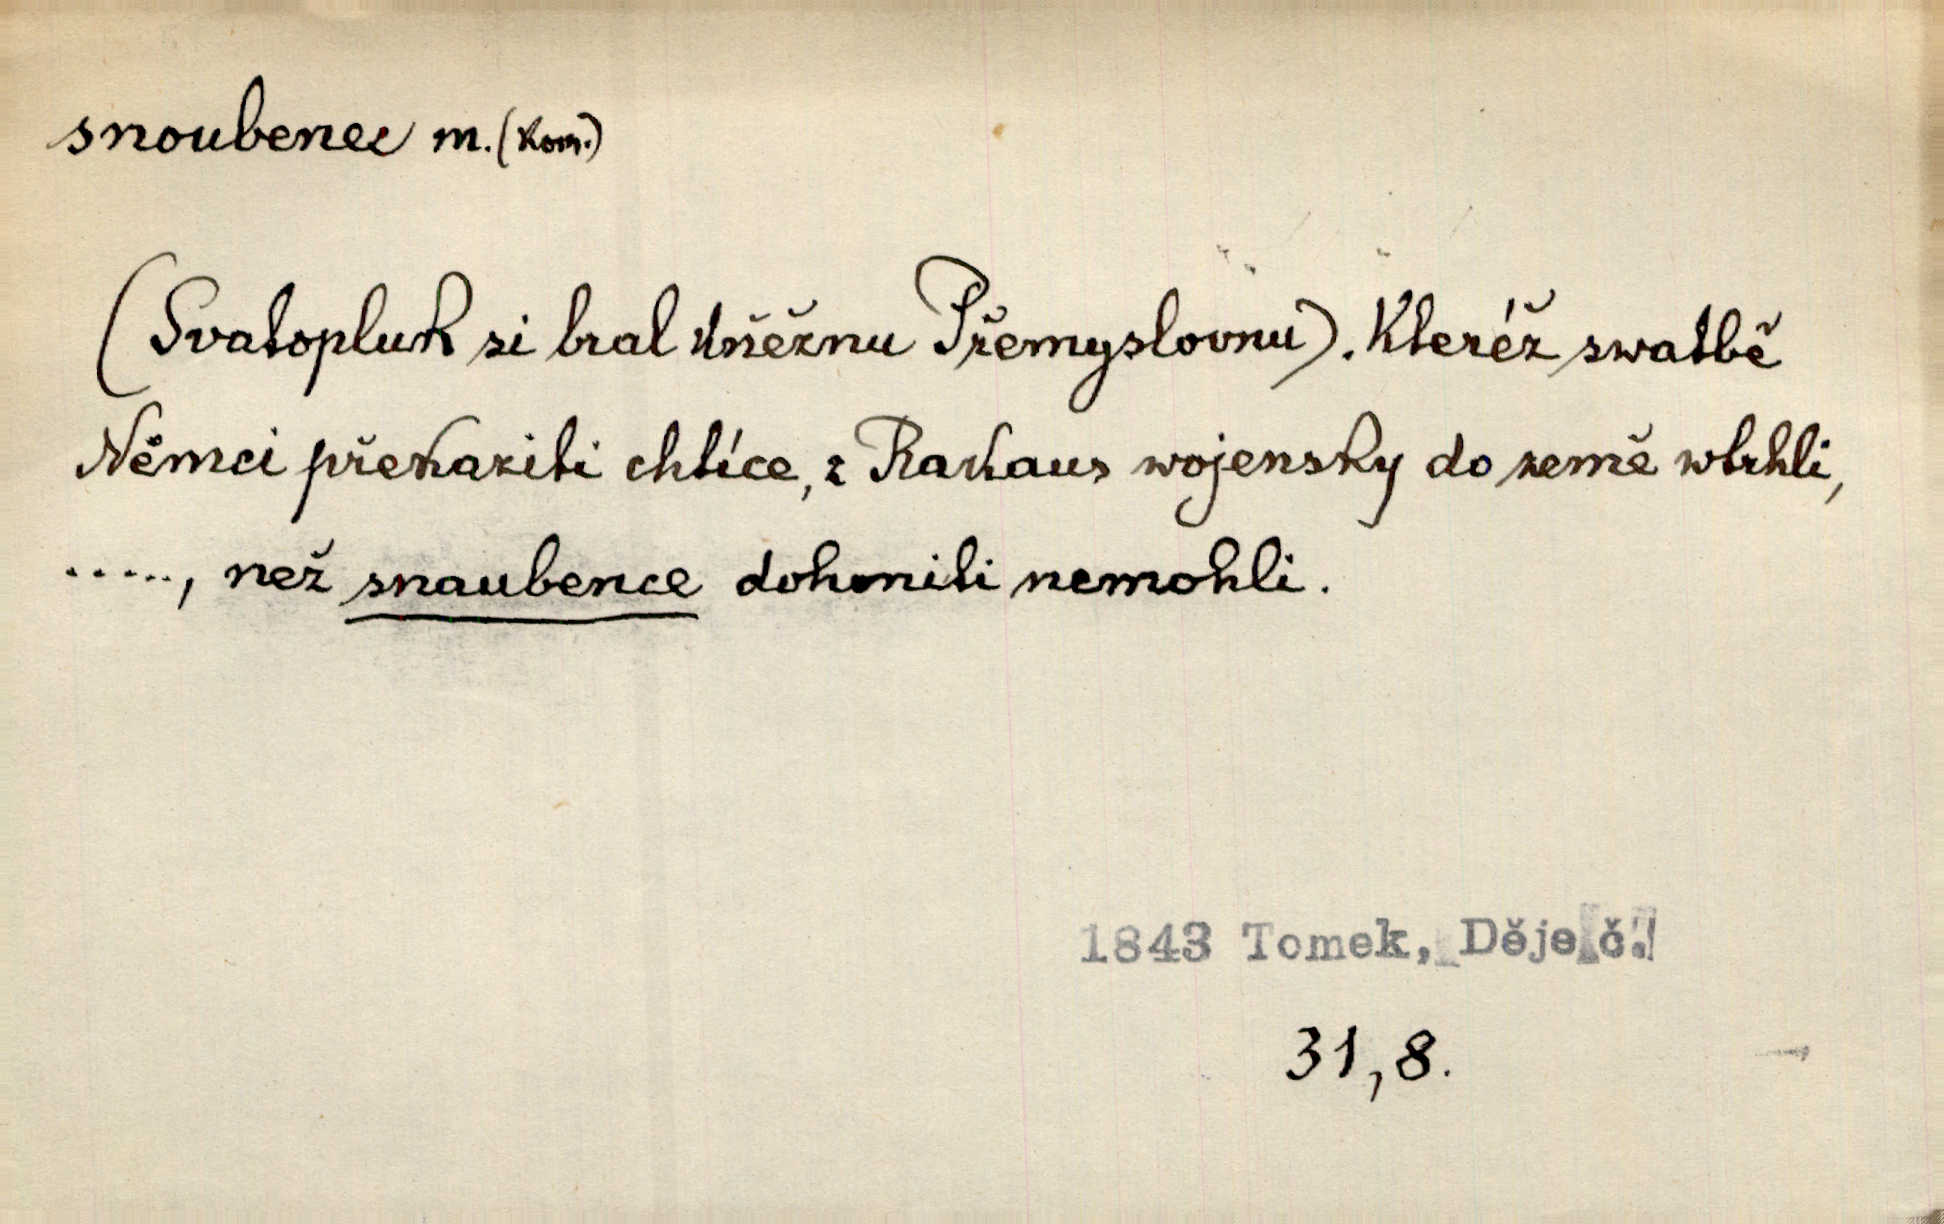 snoubenec m. (kom.)
(Svatopluk si bral kněžnu Přemyslovnu). Kteréž swatbě
Němci překaziti chtíce, z Rakaus wojensky do země wtrhli,
....., než snaubence dohoniti nemohli.
1843 Tomek, Děje č.
31,8.